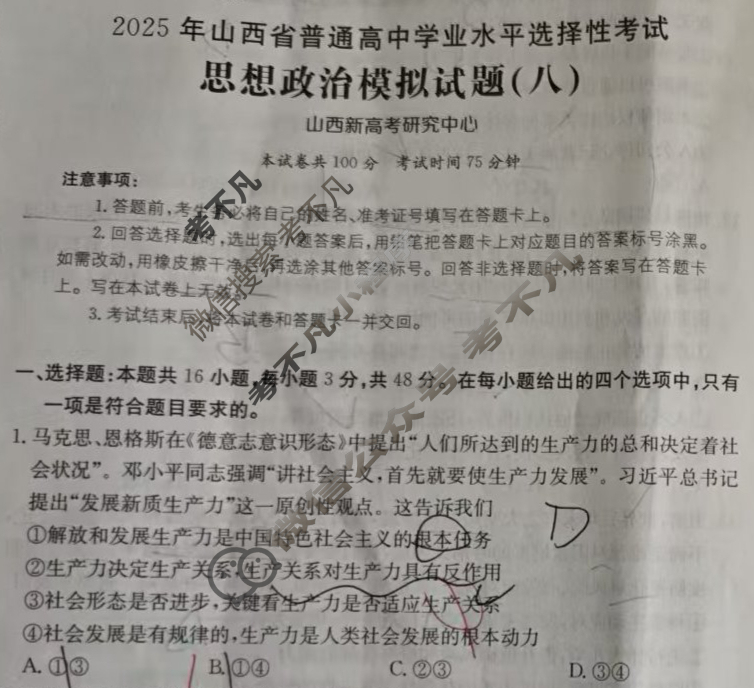 2025年山西省普通高中学业水平选择性考试
思想政治模拟试题(八)
山西新高考研究中心
本试卷共100分 考试时间75分钟
注意事项:
1.答题前,考生务必将自己的姓名、准考证号填写在答题卡上。
2.回答选择题时,选出每小题答案后,用铅笔把答题卡上对应题目的答案标号涂黑。
如需改动,用橡皮擦干净后,再选涂其他答案标号。回答非选择题时,将答案写在答题卡
上。写在本试卷上无效。
3.考试结束后,将本试卷和答题卡一并交回。
一、选择题:本题共16小题,每小题3分,共48分。在每小题给出的四个选项中,只有
一项是符合题目要求的。
1.马克思、恩格斯在《德意志意识形态》中提出“人们所达到的生产力的总和决定着社
会状况”。邓小平同志强调“讲社会主义,首先就要使生产力发展”。习近平总书记
提出“发展新质生产力”这一原创性观点。这告诉我们
D
①解放和发展生产力是中国特色社会主义的根本任务
②生产力决定生产关系,生产关系对生产力具有反作用
③社会形态是否进步,关键看生产力是否适应生产关系
④社会发展是有规律的,生产力是人类社会发展的根本动力
A.①③ B.①④ C.②③ D.③④
微信搜索考不凡
考不凡小程序
微信公众号考不凡